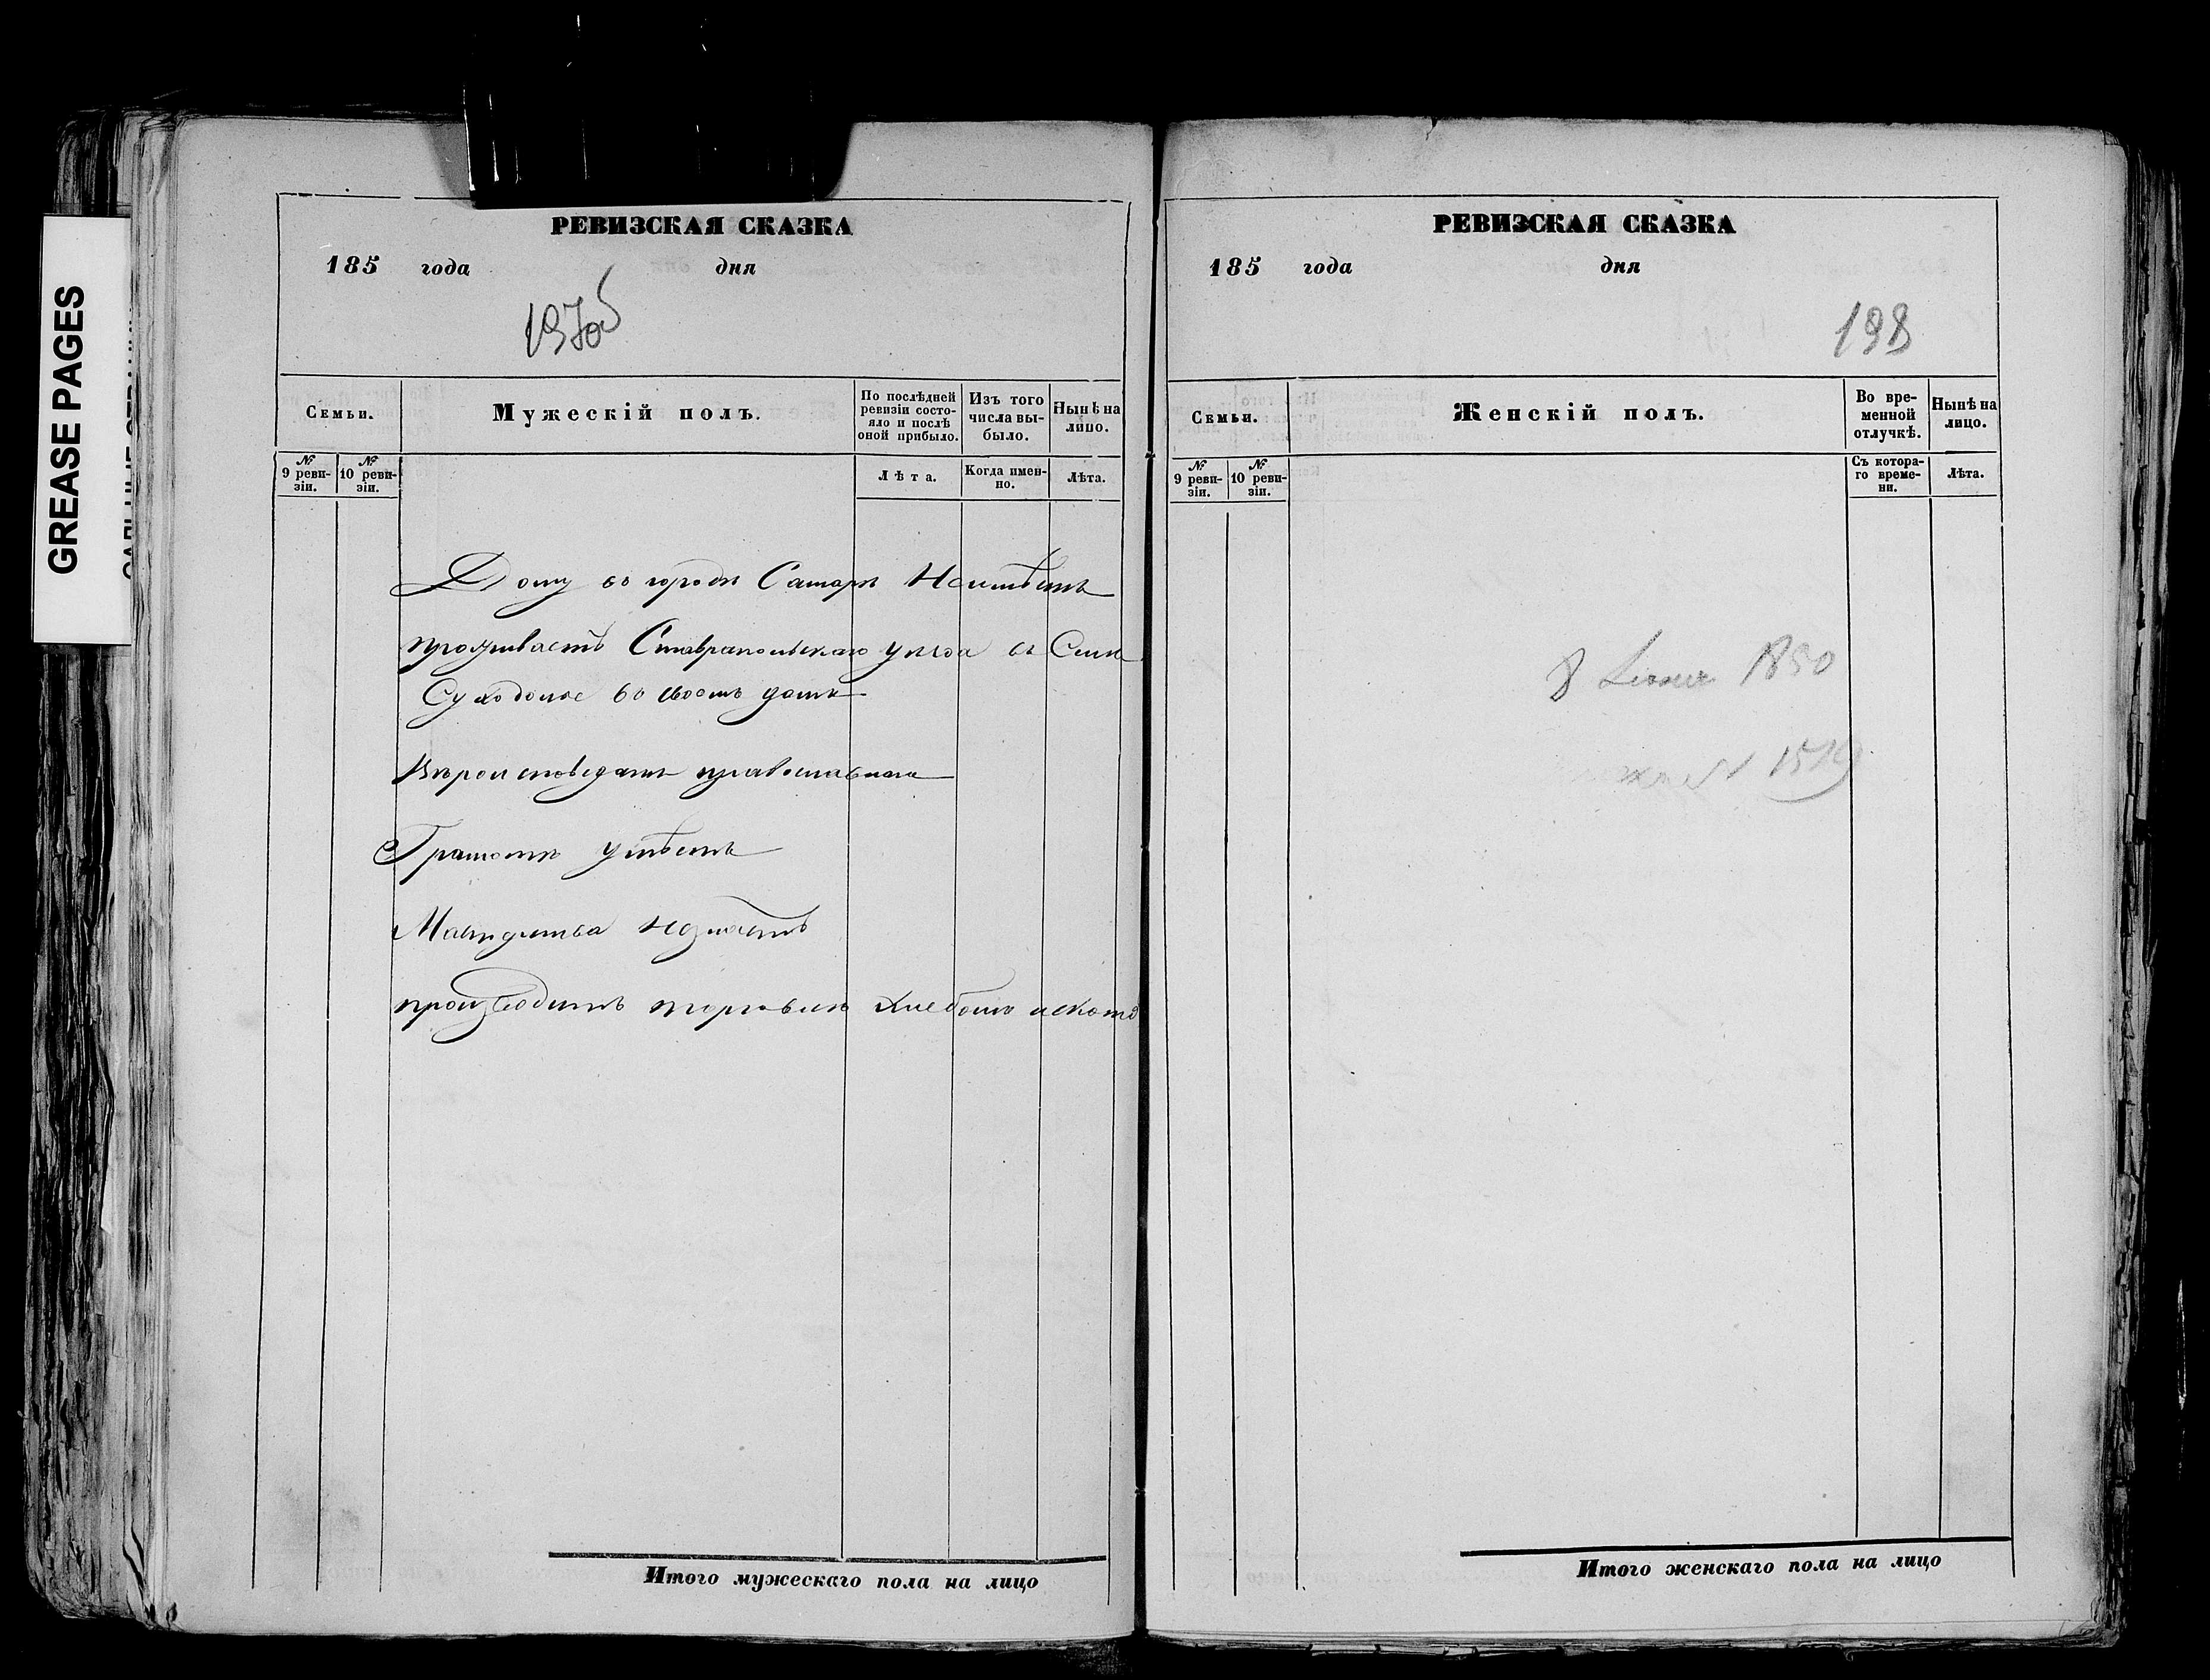 GREASE PAGES
РЕВИЗСКАЯ СКАЗКА
185 года дня
197об
Семьи.
Мужескій полъ.
По послѣдней ревизіи состояло и послѣ оной прибыло.
Изъ того числа выбыло.
Нынѣ на лицо.
№ 9 ревизіи.
№ 10 ревизіи.
Лѣта.
Когда именно.
Лѣта.
Дому въ городѣ Самарѣ Неимѣетъ
проживаетъ Ставропольскаго уѣзда въ Селѣ
Суходоле во своемъ доме
Вѣроисповеданія православнаго
Грамоте умѣетъ
Мастерства незнаетъ
производитъ торговлю хлебомъ и ското
Итого мужескаго пола на лицо
РЕВИЗСКАЯ СКАЗКА
185 года дня
198
Семьи.
Женскій полъ.
Во временной отлучкѣ.
Нынѣ на лицо.
№ 9 ревизіи.
№ 10 ревизіи.
Съ котораго времени.
Лѣта.
8 1850
№ 1519
Итого женскаго пола на лицо